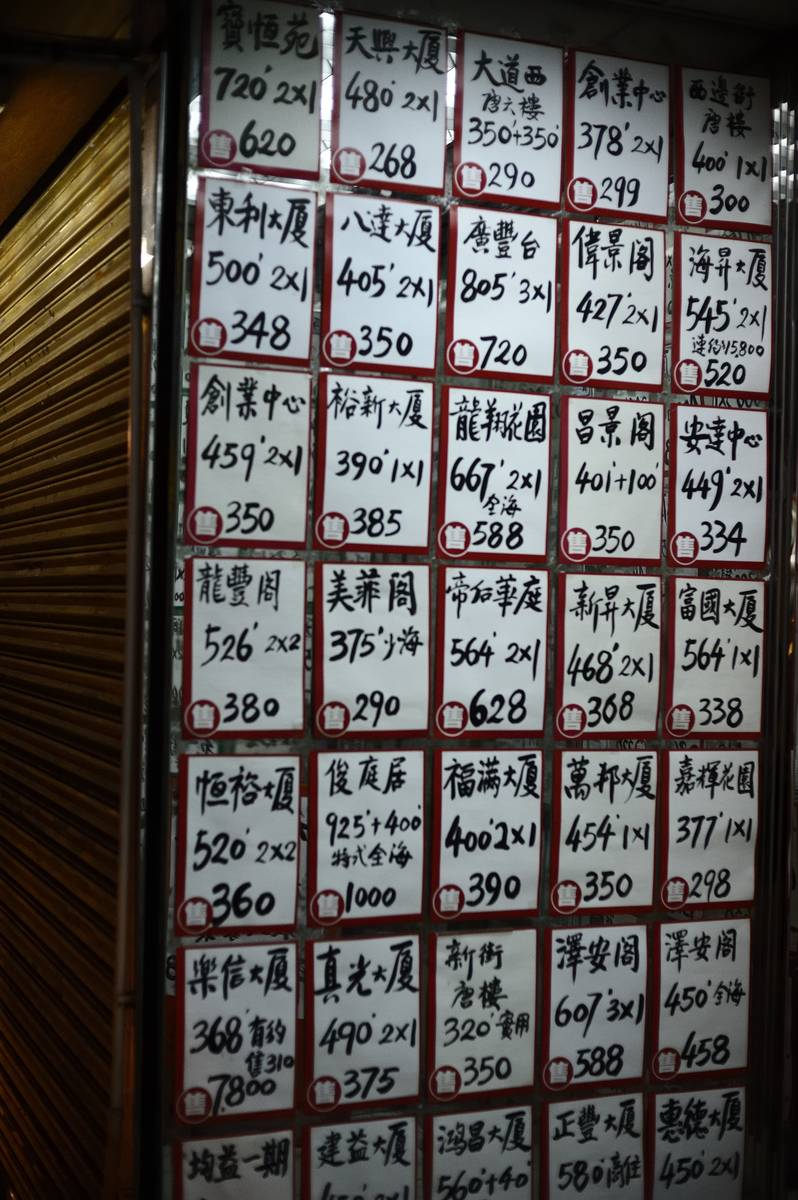 寶恒苑
720' 2x1
售 620
天興大廈
480' 2x1
售 268
大道西
唐六樓
350'+350'
售 290
創業中心
378' 2x1
售 299
西邊街
唐樓
400' 1x1
售 300
東利大廈
500' 2x1
售 348
八達大廈
405' 2x1
售 350
廣豐台
805' 3x1
售 720
偉景閣
427' 2x1
售 350
海昇大廈
545' 2x1
連約15,800
售 520
創業中心
459' 2x1
售 350
裕新大廈
390' 1x1
售 385
龍翔花園
667' 2x1
全海
售 588
昌景閣
401'+100'
售 350
安達中心
449' 2x1
售 334
龍豐閣
526' 2x2
售 380
美菲閣
375' 少海
售 290
帝后華庭
564' 2x1
售 628
新昇大廈
468' 2x1
售 368
富國大廈
564' 1x1
售 338
恒裕大廈
520' 2x2
售 360
俊庭居
925'+400'
特式全海
售 1000
福滿大廈
400' 2x1
售 390
萬邦大廈
454' 1x1
售 350
嘉輝花園
377' 1x1
售 298
樂信大廈
368' 有約
售310
售 7,800
真光大廈
490' 2x1
售 375
新街
唐樓
320' 實用
售 350
澤安閣
607' 3x1
售 588
澤安閣
450' 全海
售 458
均益一期
建益大廈
鴻昌大廈
560'+40'
正豐大廈
580' 離住
惠德大廈
450' 2x1